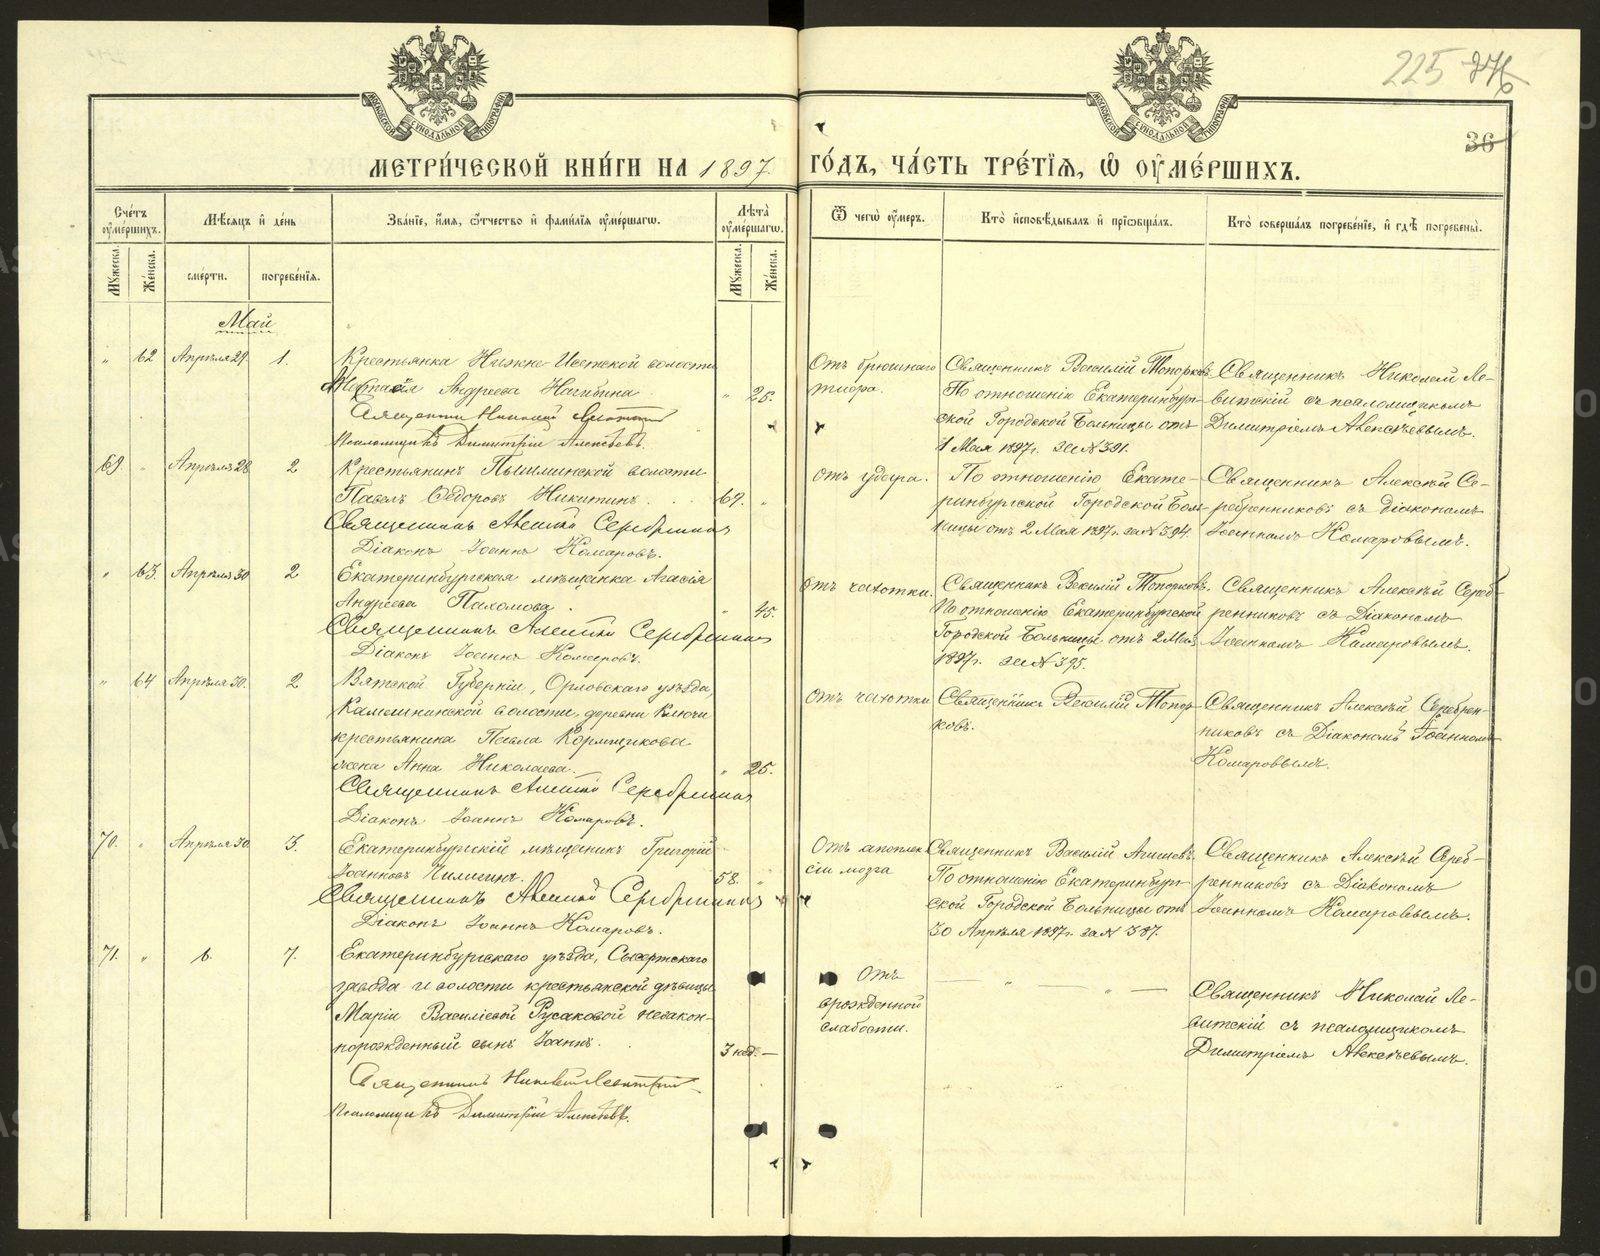 225 246
36
МОСКОВСКОЙ СѴНОДАЛЬНОЙ ТИПОГРАФІИ
МОСКОВСКОЙ СѴНОДАЛЬНОЙ ТИПОГРАФІИ
МЕТРИ́ЧЕСКОЙ КНИ́ГИ НА 1897 ГО́ДЪ, ЧА́СТЬ ТРЕ́ТІЯ, Ѡ҆ ОУ҆МЕ́РШИХЪ.
Сче́тъ оу҆ме́ршихъ.
Мѣ́сяцъ и҆ де́нь
Зва́ніе, и҆́мя, ѻ҆́тчество и҆ фами́лія оу҆ме́ршагѡ.
Лѣта̀ оу҆ме́ршагѡ.
Ѿ чегѡ̀ оу҆́меръ.
Кто̀ и҆сповѣ́дывалъ и҆ прїѡбща́лъ.
Кто̀ соверша́лъ погребе́ніе, и҆ гдѣ̀ погребены̀.
Мꙋ́жеска.
Же́нска.
сме́рти.
погребе́нія.
Мꙋ́жеска.
Же́нска.
Май
" 62 Апрѣля 29. 1. Крестьянка Нижне-Исетской волости
Андреева Нагибина. " 25.
Священникъ Николай Левитскій
Псаломщикъ Димитрій Алексѣевъ.
Отъ брюшнаго
тифа.
Священникъ Василій Топорковъ.
По отношенію Екатеринбург-
ской Городской Больницы отъ
1 Мая 1897 г. за № 391.
Священникъ Николай Ле-
витскій съ псаломщикомъ
Димитріемъ Алексѣевымъ.
69. " Апрѣля 28 2 Крестьянинъ Пышминской волости
Павелъ Ѳедоровъ Никитинъ. 69. "
Священникъ Алексѣй Серебренниковъ
Діаконъ Іоаннъ Комаровъ.
отъ удара.
По отношенію Екате-
ринбургской Городской Боль-
ницы отъ 2 Мая 1897 г. за № 394.
Священникъ Алексѣй Се-
ребренниковъ съ діакономъ
Іоанномъ Комаровымъ.
" 63. Апрѣля 30 2 Екатеринбургская мѣщанка Агафія
Андреева Пахомова. " 45.
Священникъ Алексѣй Серебренниковъ
Діаконъ Іоаннъ Комаровъ.
отъ чахотки.
Священникъ Василій Топорковъ.
По отношенію Екатеринбургской
Городской Больницы отъ 2 Мая
1897 г. за № 395.
Священникъ Алексѣй Сереб-
ренниковъ съ Діакономъ
Іоанномъ Комаровымъ.
" 64 Апрѣля 30. 2 Вятской Губерніи, Орловскаго уѣзда,
волости, деревни Ключи
крестьянина Павла Кормщикова
жена Анна Николаева. " 25.
Священникъ Алексѣй Серебренниковъ
Діаконъ Іоаннъ Комаровъ.
отъ чахотки
Священникъ Василій Топор-
ковъ.
Священникъ Алексѣй Серебрен-
никовъ съ Діакономъ Іоанномъ
Комаровымъ.
70. " Апрѣля 30 3. Екатеринбургскій мѣщанинъ Григорій
Іоанновъ 58. "
Священникъ Алексѣй Серебренниковъ
Діаконъ Іоаннъ Комаровъ.
Отъ апоплек-
сіи мозга
Священникъ Василій
По отношенію Екатеринбург-
ской Городской Больницы отъ
30 Апрѣля 1897 г. за № 387.
Священникъ Алексѣй Сереб-
ренниковъ съ Діакономъ
Іоанномъ Комаровымъ.
71. " 6. 7. Екатеринбургскаго уѣзда, Сысертскаго
завода и волости крестьянской дѣвицы
Маріи Василіевой Русаковой незакон-
норожденный сынъ Іоаннъ. 3 нед. —
Священникъ Николай Левитскій
Псаломщикъ Димитрій Алексѣевъ.
Отъ
врожденной
слабости.
— " — " —
Священникъ Николай Ле-
витскій съ псаломщикомъ
Димитріемъ Алексѣевымъ.